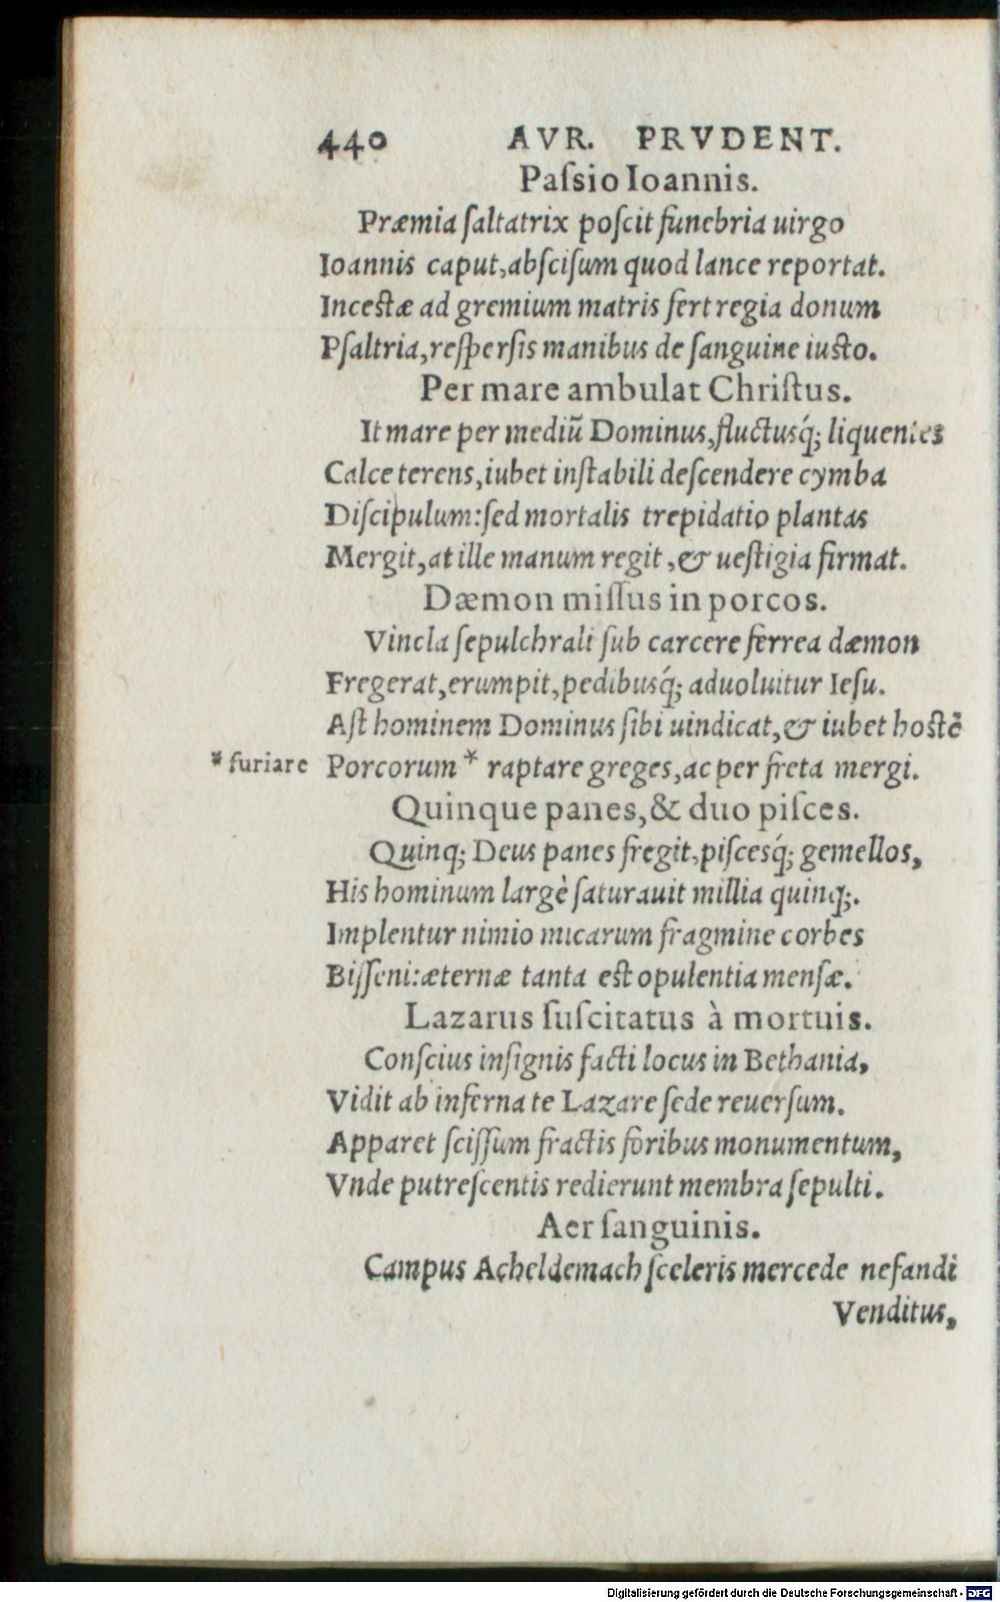 440 AVR. PRVDENT.
Paſsio Ioannis.
Præmia ſaltatrix poſcit funebria uirgo
Ioannis caput, abſciſum quod lance reportat.
Inceſtæ ad gremium matris fert regia donum
Pſaltria, reſperſis manibus de ſanguine iuſto.
Per mare ambulat Chriſtus.
It mare per mediũ Dominus, fluctusq́; liquentes
Calce terens, iubet inſtabili deſcendere cymba
Diſcipulum: ſed mortalis trepidatio plantas
Mergit, at ille manum regit, & ueſtigia firmat.
Dæmon miſſus in porcos.
Vincla ſepulchrali ſub carcere ferrea dæmon
Fregerat, erumpit, pedibusq́; aduoluitur Ieſu.
Aſt hominem Dominus ſibi uindicat, & iubet hoſtẽ
* furiare Porcorum * raptare greges, ac per freta mergi.
Quinque panes, & duo piſces.
Quinq; Deus panes fregit, piſcesq́; gemellos,
His hominum largè ſaturauit millia quinq;.
Implentur nimio micarum fragmine corbes
Biſſeni: æternæ tanta eſt opulentia menſæ.
Lazarus ſuſcitatus à mortuis.
Conſcius inſignis facti locus in Bethania,
Vidit ab inferna te Lazare ſede reuerſum.
Apparet ſciſſum fractis foribus monumentum,
Vnde putreſcentis redierunt membra ſepulti.
Aer ſanguinis.
Campus Acheldemach ſceleris mercede nefandi
Venditus,
Digitalisierung gefördert durch die Deutsche Forschungsgemeinschaft - DFG